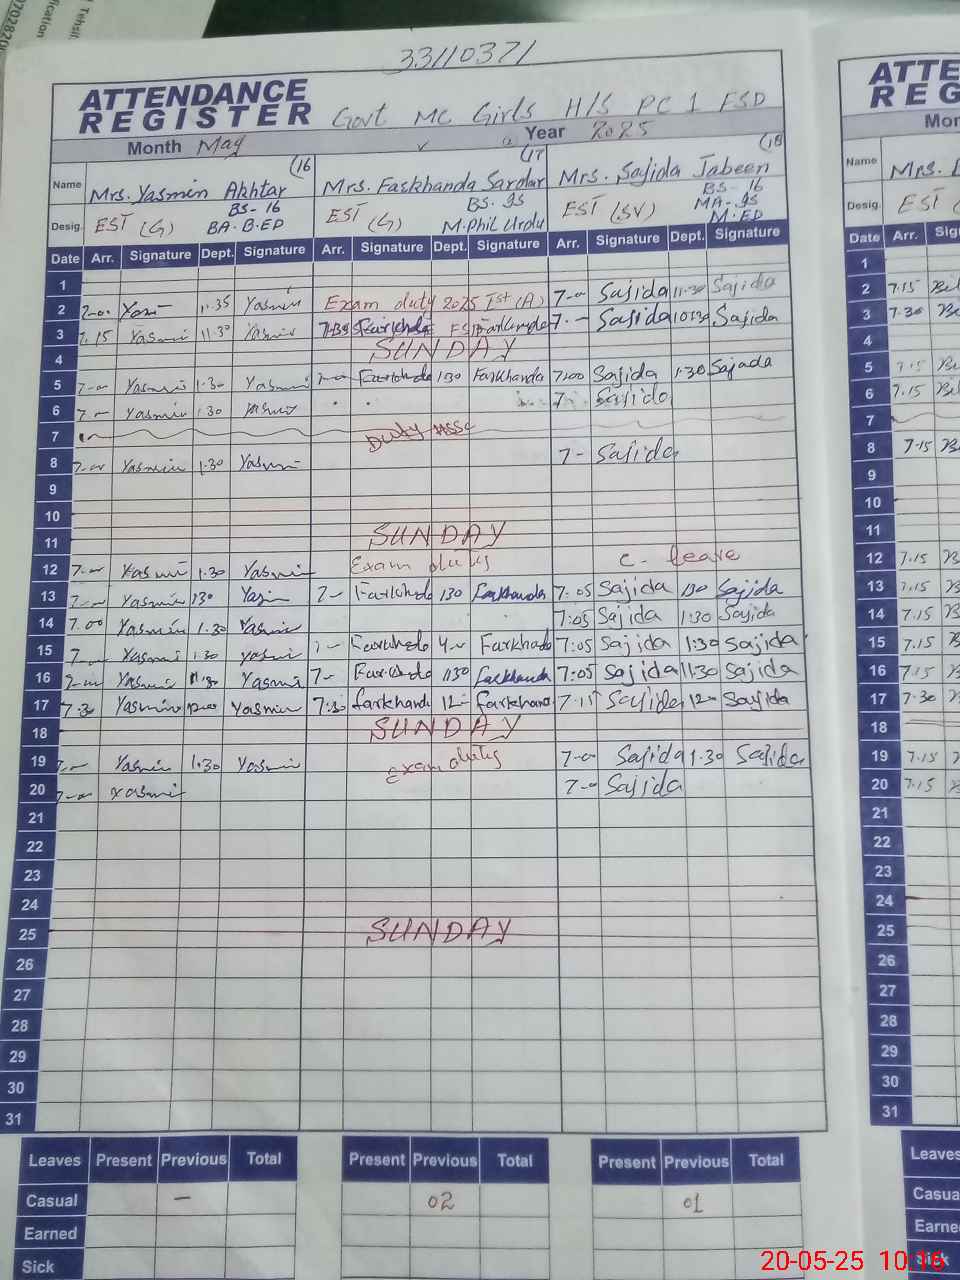 33110371
ATTENDANCE
REGISTER
Govt MC Girls H/S PC 1 FSD
Month May Year 2025
(16 (17 (18
Name Mrs. Yasmin Akhtar Mrs. Farkhanda Sardar Mrs. Sajida Jabeen
BS-16 BS. 9S BS-16
Desig. EST (G) BA.B.ED EST (G) M.Phil Urdu EST (SV) MA-9S
M.ED
Date Arr. Signature Dept. Signature Arr. Signature Dept. Signature Arr. Signature Dept. Signature
1
2 7-00 Yasmin 11.35 Yasmin Exam duty 2025 Ist (A) 7-00 Sajida 11-30 Sajida
3 7.15 Yasmin 11.30 Yasmin Farkhanda Farkhanda 7.- Sajida Sajida
4 SUNDAY
5 7-00 Yasmin 1.30 Yasmin 7-00 Farkhanda 130 Farkhanda 7:00 Sajida 1.30 Sajada
6 7- Yasmin 1.30 Yasmin 7- Sajida
7 Duty HSSC
8 7-00 Yasmin 1.30 Yasmin 7- Sajida
9
10
11 SUNDAY
12 7-00 Yasmin 1.30 Yasmin Exam duty C-leave
13 7-00 Yasmin 130 Yasmin 7- Farkhanda 130 Farkhanda 7:05 Sajida 130 Sajida
14 7.00 Yasmin 1.30 Yasmin 7:05 Sajida 1:30 Sajida
15 7- Yasmin 1.30 Yasmin 7- Farkhanda 4- Farkhanda 7:05 Sajida 1:30 Sajida
16 7-00 Yasmin Yasmin 7- Farkhanda 1130 Farkhanda 7:05 Sajida 11:30 Sajida
17 7:30 Yasmin 12:00 Yasmin 7:30 Farkhanda 12- Farkhanda 7:15 Sajida 12- Sajida
18 SUNDAY
19 7-00 Yasmin 1.30 Yasmin Exam duty 7-00 Sajida 1.30 Sajida
20 7-00 Yasmin 7-00 Sajida
21
22
23
24
25 SUNDAY
26
27
28
29
30
31
Leaves Present Previous Total Present Previous Total Present Previous Total
Casual — 02 01
Earned
Sick
ATTE
REG
Mon
Name Mrs.
Desig. EST
Date Arr. Sig
1
2 7.15
3 7.30
4
5 7.15
6 7.15
7
8 7.15
9
10
11
12 7.15
13 7.15
14 7.15
15 7.15
16 7.15
17 7.30
18
19 7.15
20 7.15
21
22
23
24
25
26
27
28
29
30
31
Leaves
Casua
Earne
Sick
20-05-25 10:16